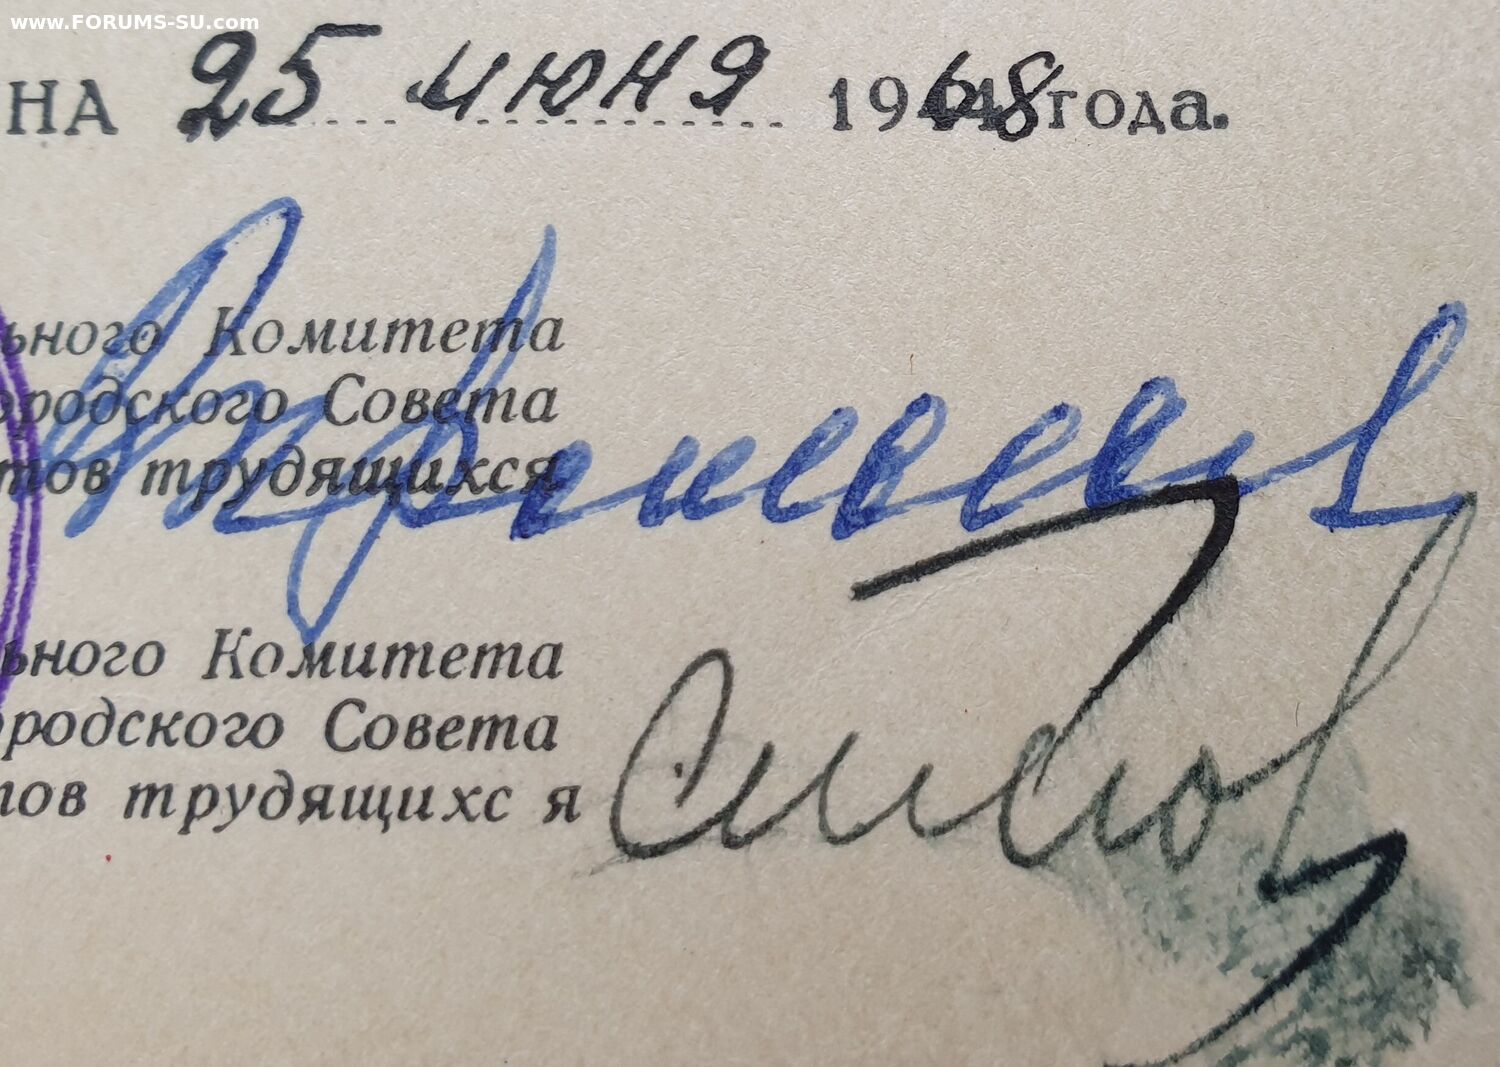 www.FORUMS-SU.com
НА 25 июня 1968 года.
ьного Комитета
ородского Совета
тов трудящихся
ьного Комитета
ородского Совета
тов трудящихс я